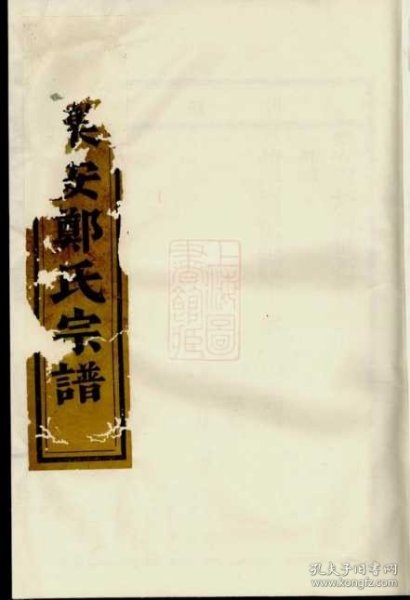 襄安鄭氏宗譜
上海圖
書館藏
孔夫子旧书网
www.kongfz.com